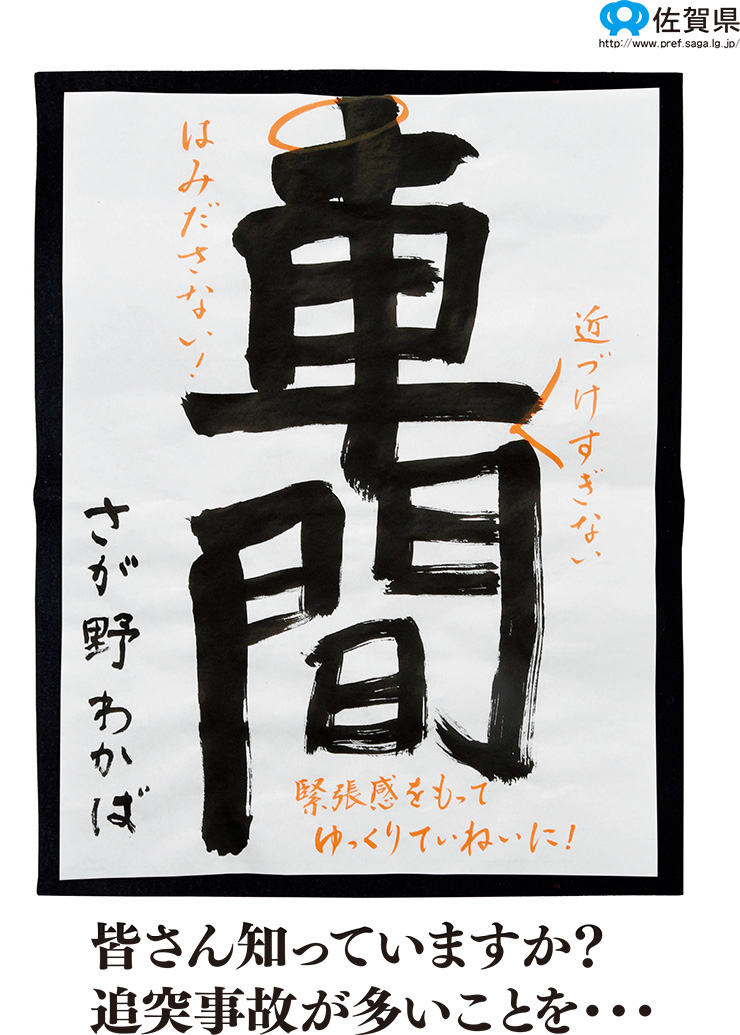 佐賀県
http://www.pref.saga.lg.jp/
車間
はみださない!
近づけすぎない
さが野わかば
緊張感をもって
ゆっくりていねいに!
皆さん知っていますか?
追突事故が多いことを・・・